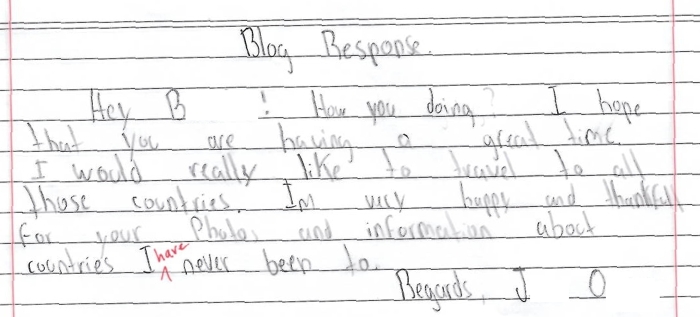 Blog Response.
Hey B ! How you doing? I hope
that you are having a great time.
I would really like to travel to all
those countries. Im very happy and thankfull
for your Photos and information about
countries I have never been to.
Regards, J O